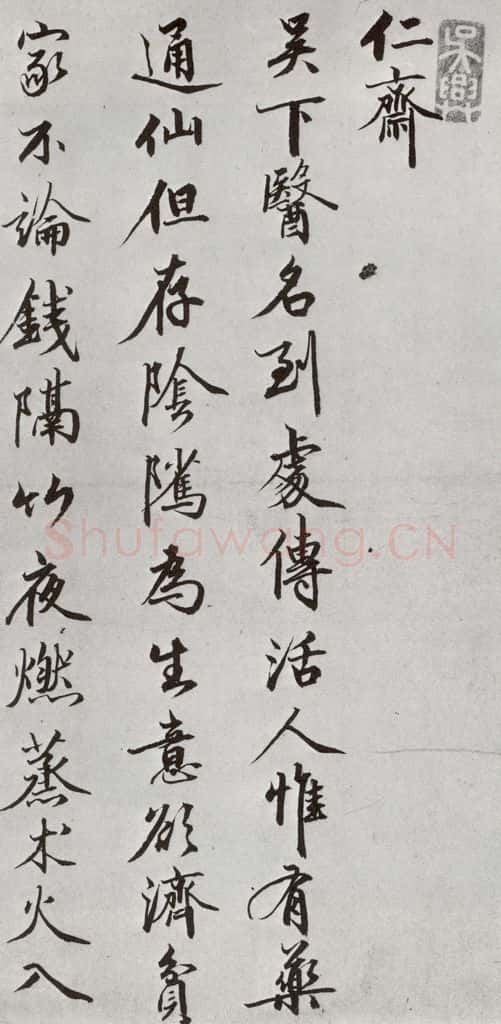 仁齋
吴下醫名到處傳活人惟有藥
通仙但存陰隲為生意欲濟貧
家不論錢隔竹夜燃蒸术火入
Shufawang.CN